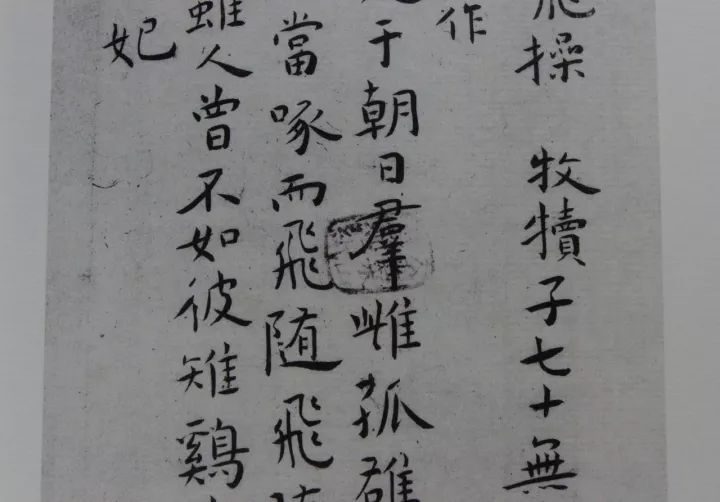 操 牧犢子七十無
作
于朝日羣雌孤雄
當啄而飛随飛
雖人曾不如彼雉鷄
妃